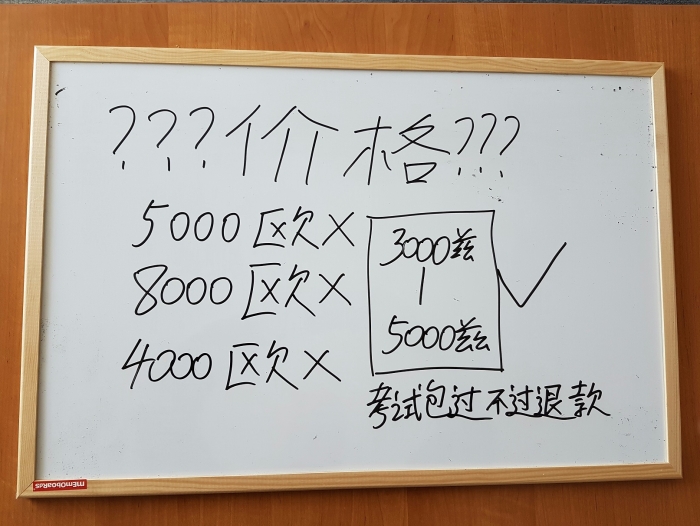 ???价格???
5000欧×
8000欧×
4000欧×
3000兹
|
5000兹
✓
考试包过不过退款
MEMOBOARDS